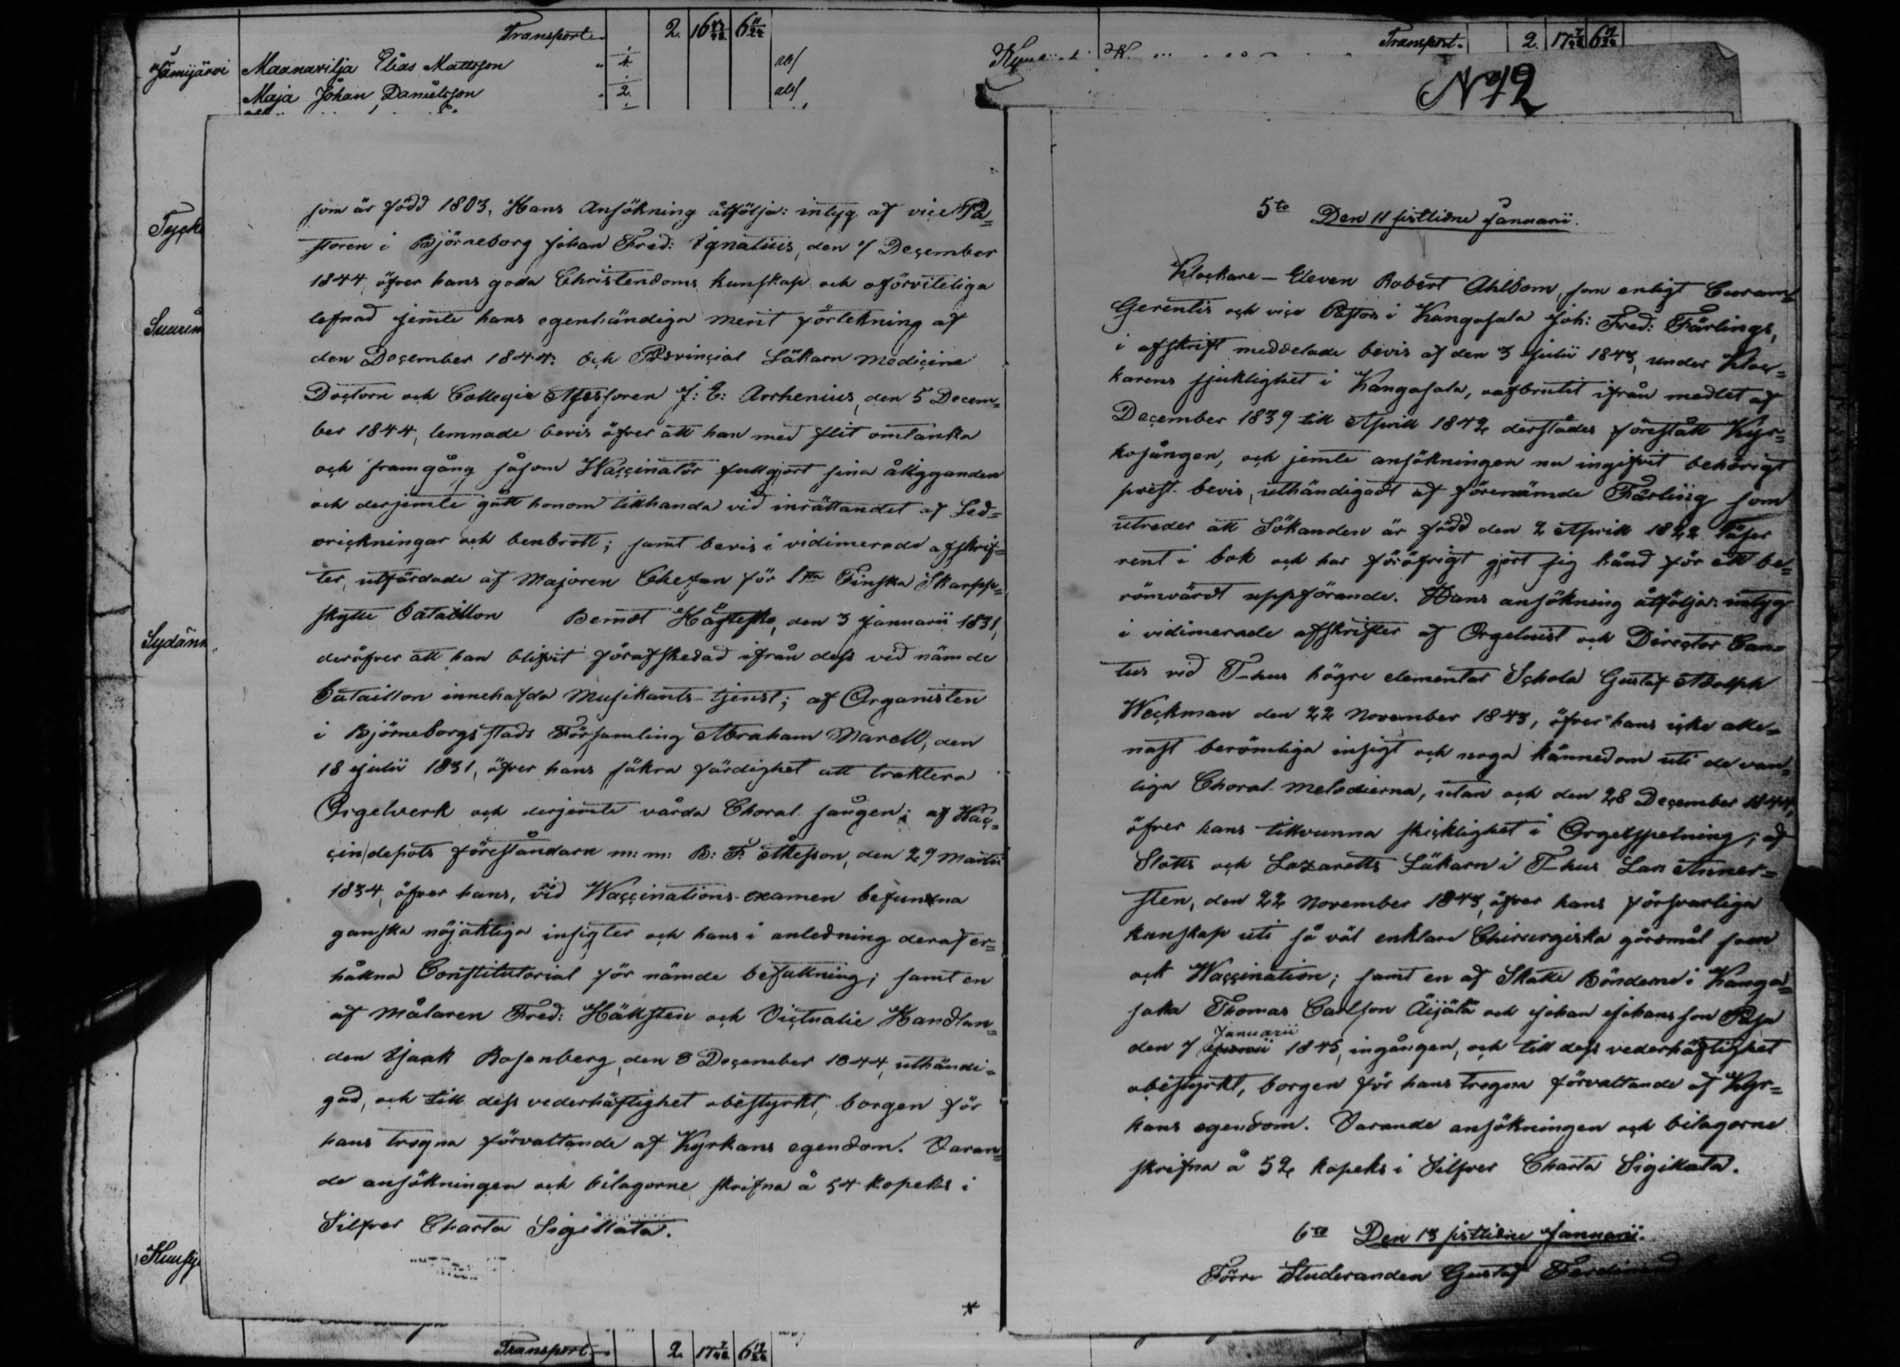 Transport. 2. 16 6
Jämijärvi Maanavilja Elias Mattsson
Maja Johan Danielsson 2
Transport. 2. 17 6
No 12
Tyck
Suurim
Sydänm
som är född 1803. Hans Ansökning åtfölja: intyg af vice Pa=
storen i Björneborg Johan Fred: Ignatius, den 7 December
1844 öfver hans goda Christendoms kunskap och oförviteliga
lefnad jemte hans egenhändiga merit förtekning af
den December 1844; och Provincial Läkarn Medicine
Doctorn och Collegie Assessoren J: E: Arrhenius, den 5 Decem=
ber 1844, lemnade bevis öfver att han med flit omtanka
och framgång såsom Vaccinatör fullgjort sina åligganden
och derjemte gått honom tillhanda vid inrättandet af Led=
vrickningar och benbrott; samt bevis i vidimerade afskrif=
ter, utfärdade af Majoren Chefen för 1sta Finska Skarpp=
skytte bataillon Berndt den 3 Januarii 1831,
deröfver att han blifvit förafskedad ifrån dess vid nämde
bataillon innehafda Musikants-tjenst; af Organisten
i Björneborgs stads Församling Abraham Marell, den
18 Julii 1831, öfver hans säkra färdighet att traktera
Orgelverk och derjemte vårda Choral sången; af Vac=
cindepots föreståndarn m: m: B: F. Åkesson, den 29 Martii
1834, öfver hans, vid Vaccinations-examen befundna
ganska nöjaktiga insigter och hans i anledning deraf er=
hållna Constitutorial för nämde befattning; samt en
af Målaren Fred: Hällsten och Victualie Handlan=
den Isaak Rosenberg, den 8 December 1844, uthändi=
gad, och till dess vederhäftighet obestyrkt, borgen för
hans trogna förvaltande af Kyrkans egendom. Varan=
de ansökningen och bilagorne skrifna å 54 kopeks i
Silfver Charta Sigillata.
*
5te Den 11 sistlidne Januarii.
Klockare-Eleven Robert Ahlbom, som enligt Curam
Gerentis och vice Pastor i Kangasala Joh: Fred: Färlings,
i afskrift meddelade bevis af den 3 Julii 1843, under Kloc=
karens sjuklighet i Kangasala, oafbrutit ifrån medlet af
December 1839 till April 1842 derstädes förestått Kyr=
kosången, och jemte ansökningen nu ingifvit behörigt
prest bevis, uthändigadt af förenämde Färling som
utreder att Sökanden är född den 2 April 1822 läser
rent i bok och har föröfrigt gjort sig känd för ett be=
römvärdt uppförande. Hans ansökning åtfölja: intyg
i vidimerade afskrifter af Orgelnist och Director Can=
tus vid T-hus högre elementar Schola Gustaf Adolph
Weckman den 22 November 1843, öfver hans icke alle=
nast berömliga insigt och noga kännedom uti de van=
liga Choral Melodierna, utan och den 28 December 1844,
öfver hans tillvunna skicklighet i Orgelspelning; af
Slotts och Lazaretts Läkarn i T-hus Län Anner=
sten, den 22 November 1843, öfver hans försvarliga
kunskap uti så väl enklare Chirurgiska göromål som
ock Vaccination; samt en af Skatte Bönderne i Kanga=
sala Thomas Carlsson Äijälä och Johan Johansson Paja
Januarii
den 7 1845, ingången, och till dess vederhäftighet
obestyrkt, borgen för hans trogna förvaltande af Kyr=
kans egendom. Varande ansökningen och bilagorne
skrifna å 52 kopeks i Silfver Charta Sigillata.
6te Den 13 sistlidne Januarii.
Förre Studeranden Gustaf Ferdinand
Transport. 2. 17 6